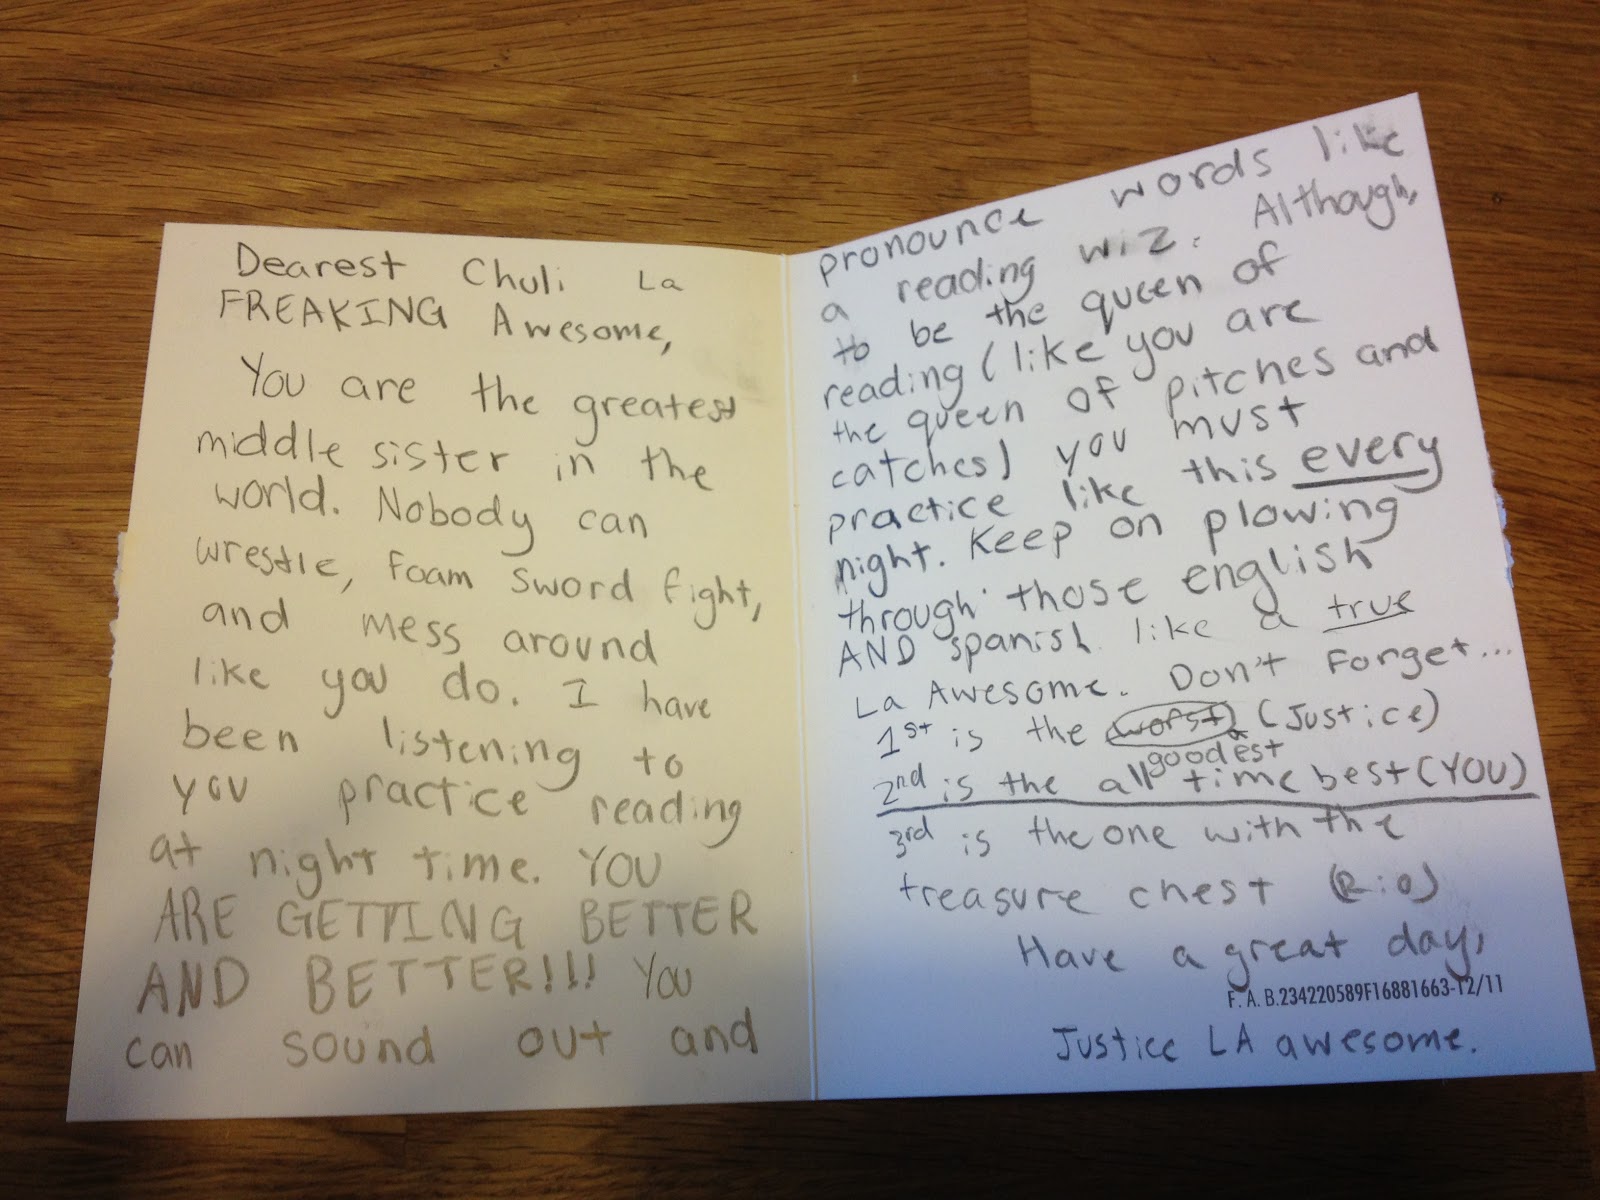 Dearest Chuli La
FREAKING Awesome,
You are the greatest
middle sister in the
world. Nobody can
wrestle, foam sword fight,
and mess around
like you do. I have
been listening to
you practice reading
at night time. YOU
ARE GETTING BETTER
AND BETTER!!! You
can sound out and
pronounce words like
a reading wiz. Although,
to be the queen of
reading (like you are
the queen of pitches and
catches) you must
practice like this every
night. Keep on plowing
through those english
AND spanish like a true
La Awesome. Don't Forget...
1st is the worst (Justice)
goodest
2nd is the all time best (YOU)
3rd is the one with the
treasure chest (Rio)
Have a great day,
F. A. B.234220589F16881663-12/11
Justice LA awesome.